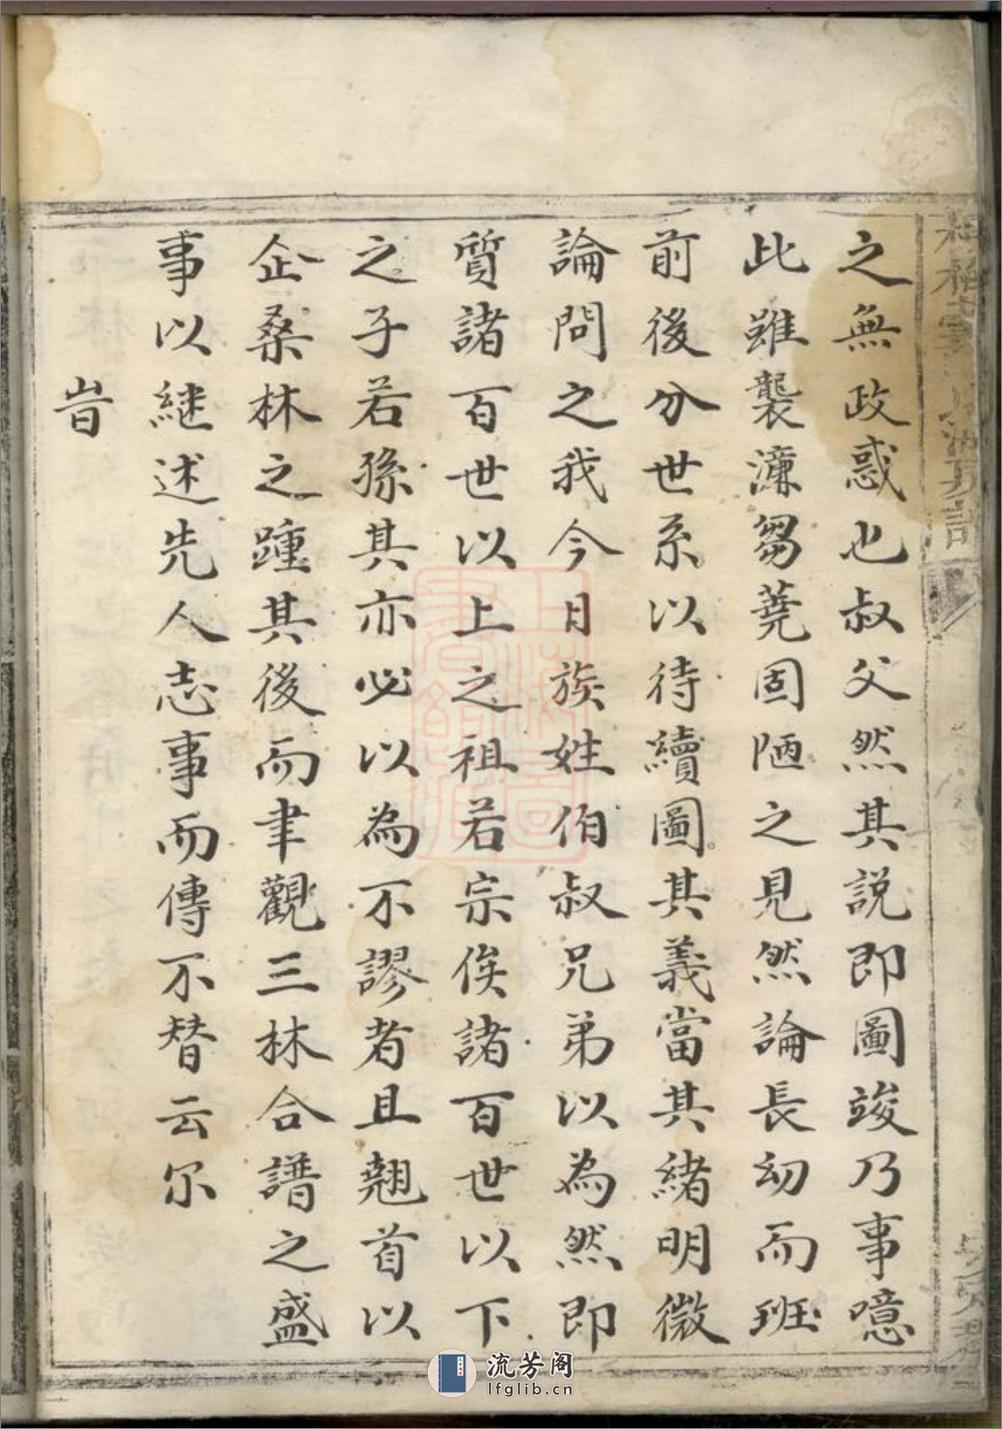 之無政惑也叔父然其説即圖竣乃事噫
此雖襲濂芻蕘固陋之見然論長幼而班
前後分世系以待續圖其義當其緒明微
論問之我今日族姓伯叔兄弟以為然即
質諸百世以上之祖若宗俟諸百世以下
之子若孫其亦必以為不謬者且翹首以
企桑林之踵其後而聿觀三林合譜之盛
事以継述先人志事而傳不替云尔
旹
流芳阁
lfglib.cn